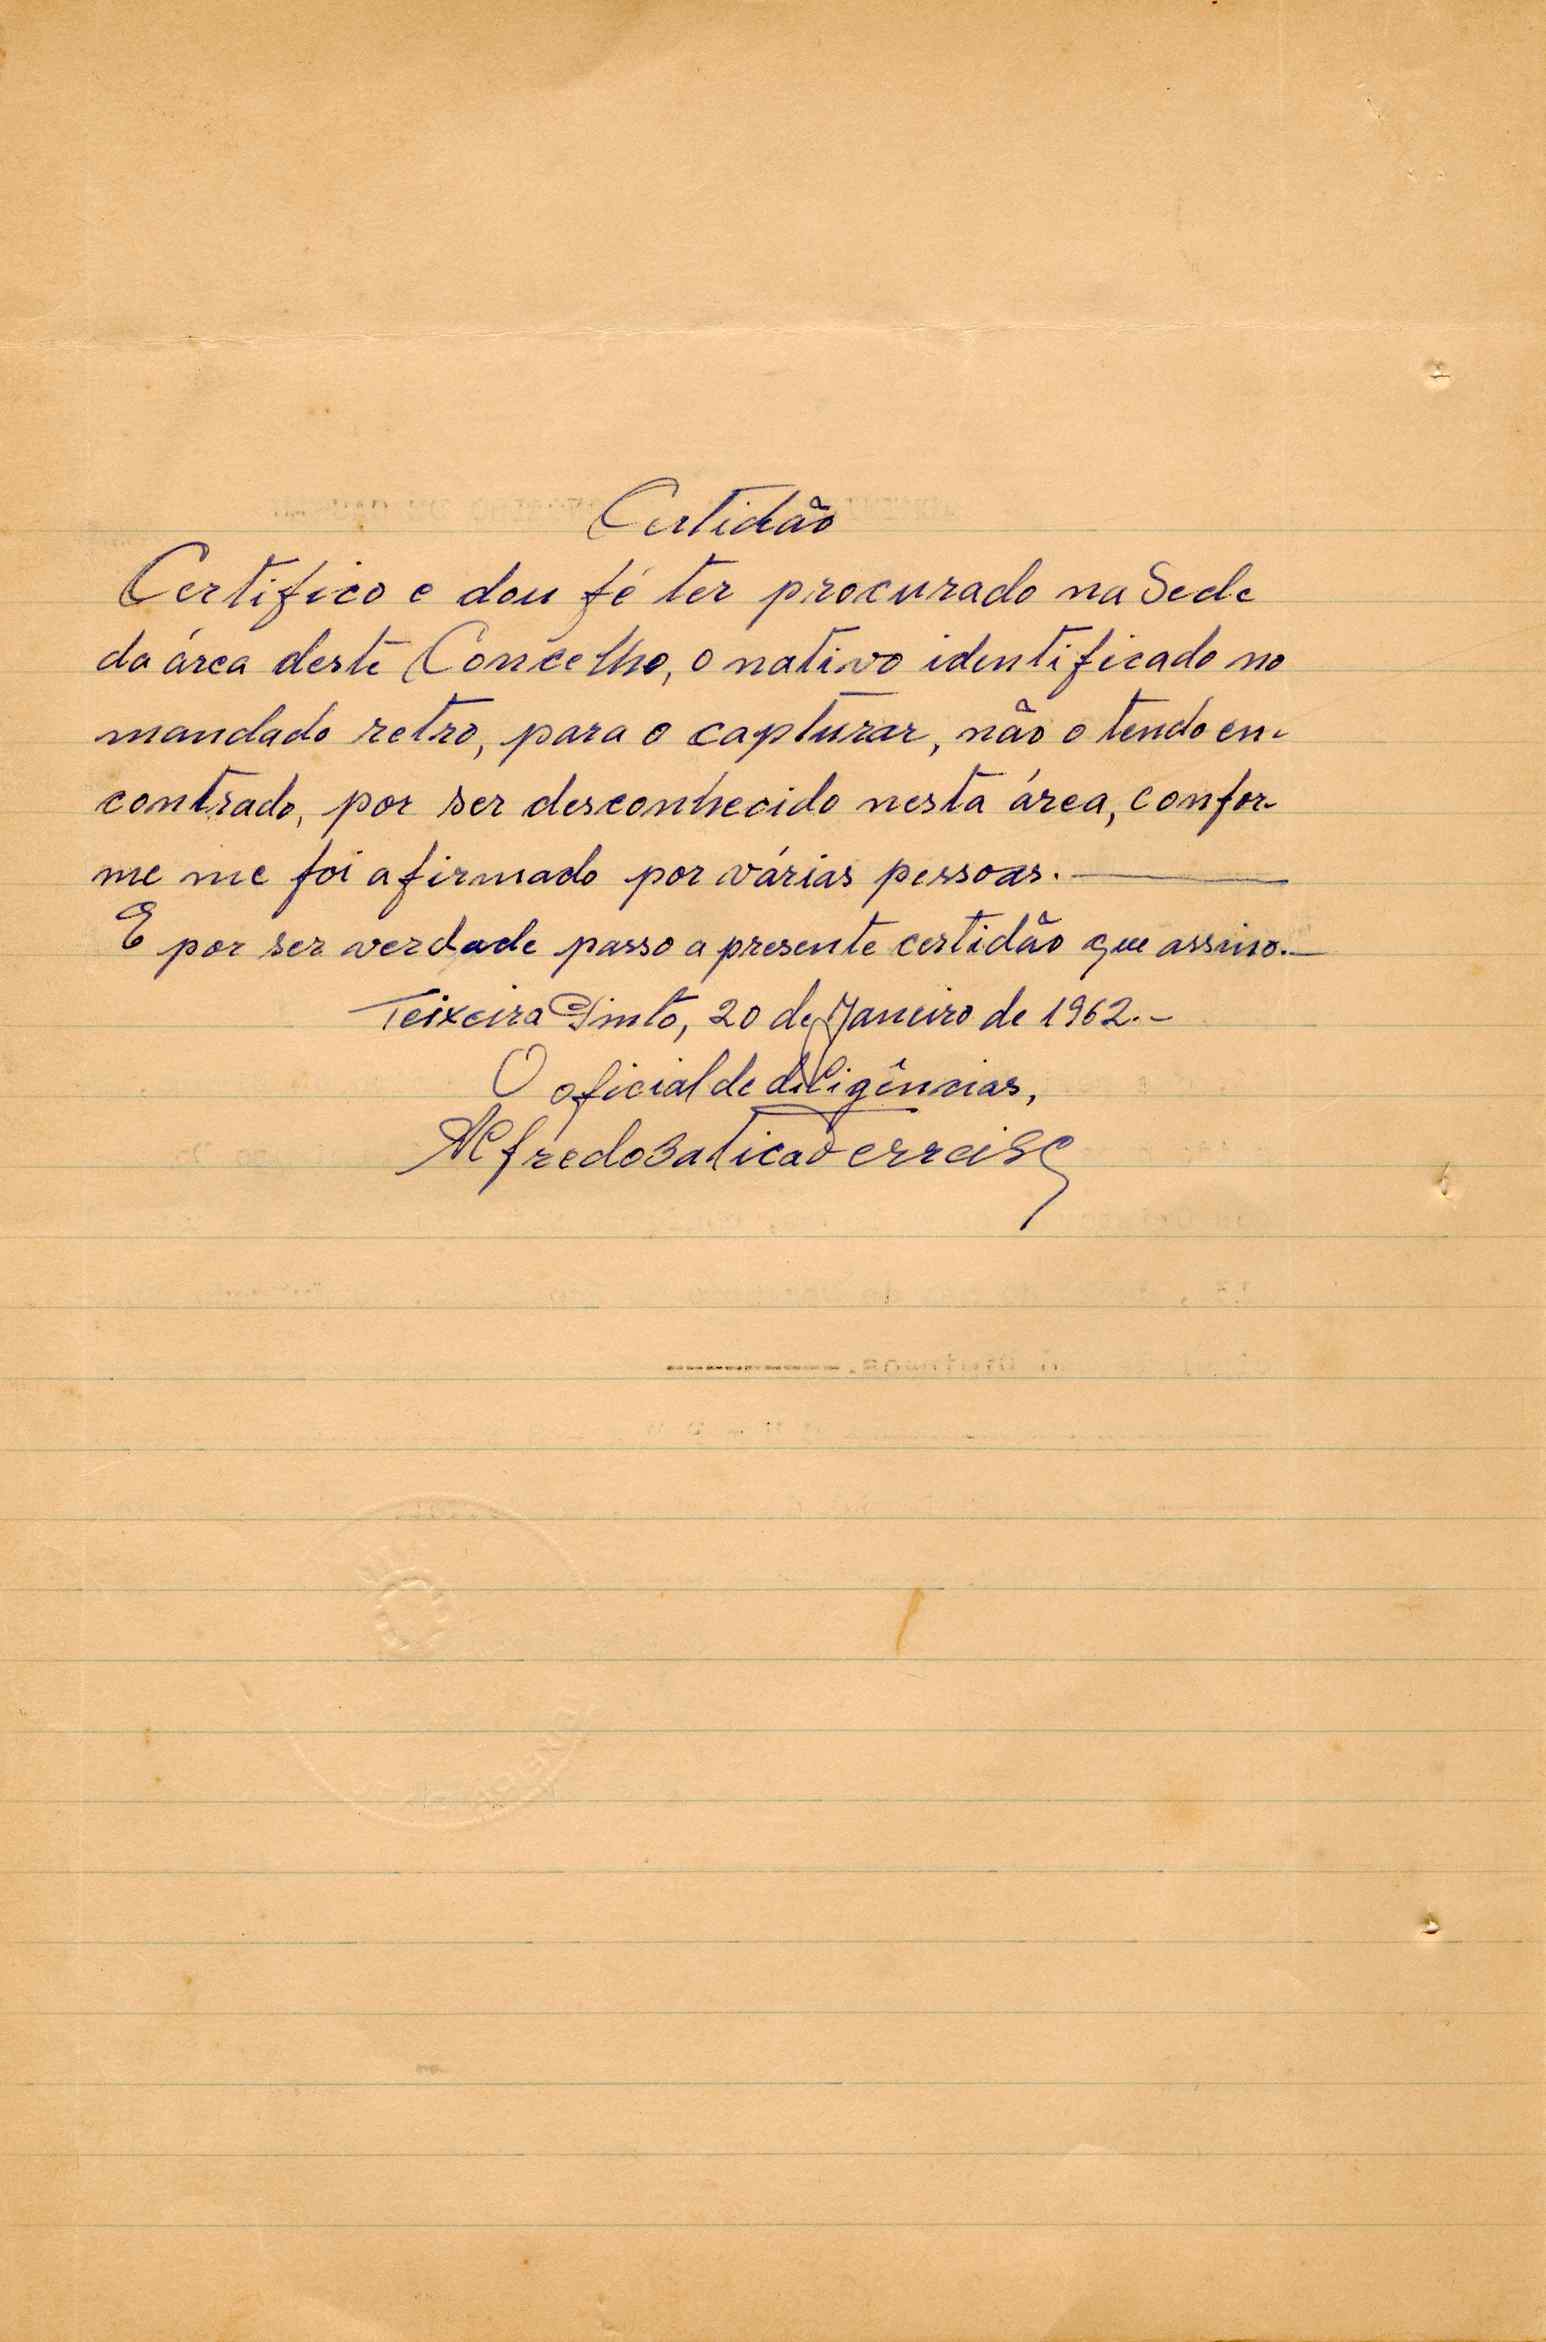 Certidão
Certifico e dou fé ter procurado na Sede
da área deste Concelho, o nativo identificado no
mandado retro, para o capturar, não o tendo en-
contrado, por ser desconhecido nesta área, confor-
me me foi afirmado por várias pessoas.
E por ser verdade passo a presente certidão que assino.-
Teixeira Pinto, 20 de Janeiro de 1962.-
O oficial de diligências,
Alfredo